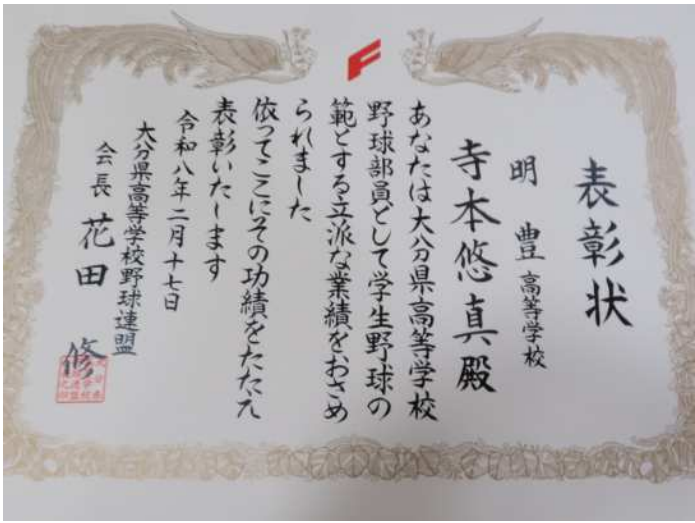 表彰状
明豊高等学校
寺本悠真殿
あなたは大分県高等学校
野球部員として学生野球の
範とする立派な業績をおさめ
られました
依ってここにその功績をたたえ
表彰いたします
令和八年二月十七日
大分県高等学校野球連盟
会長 花田 修